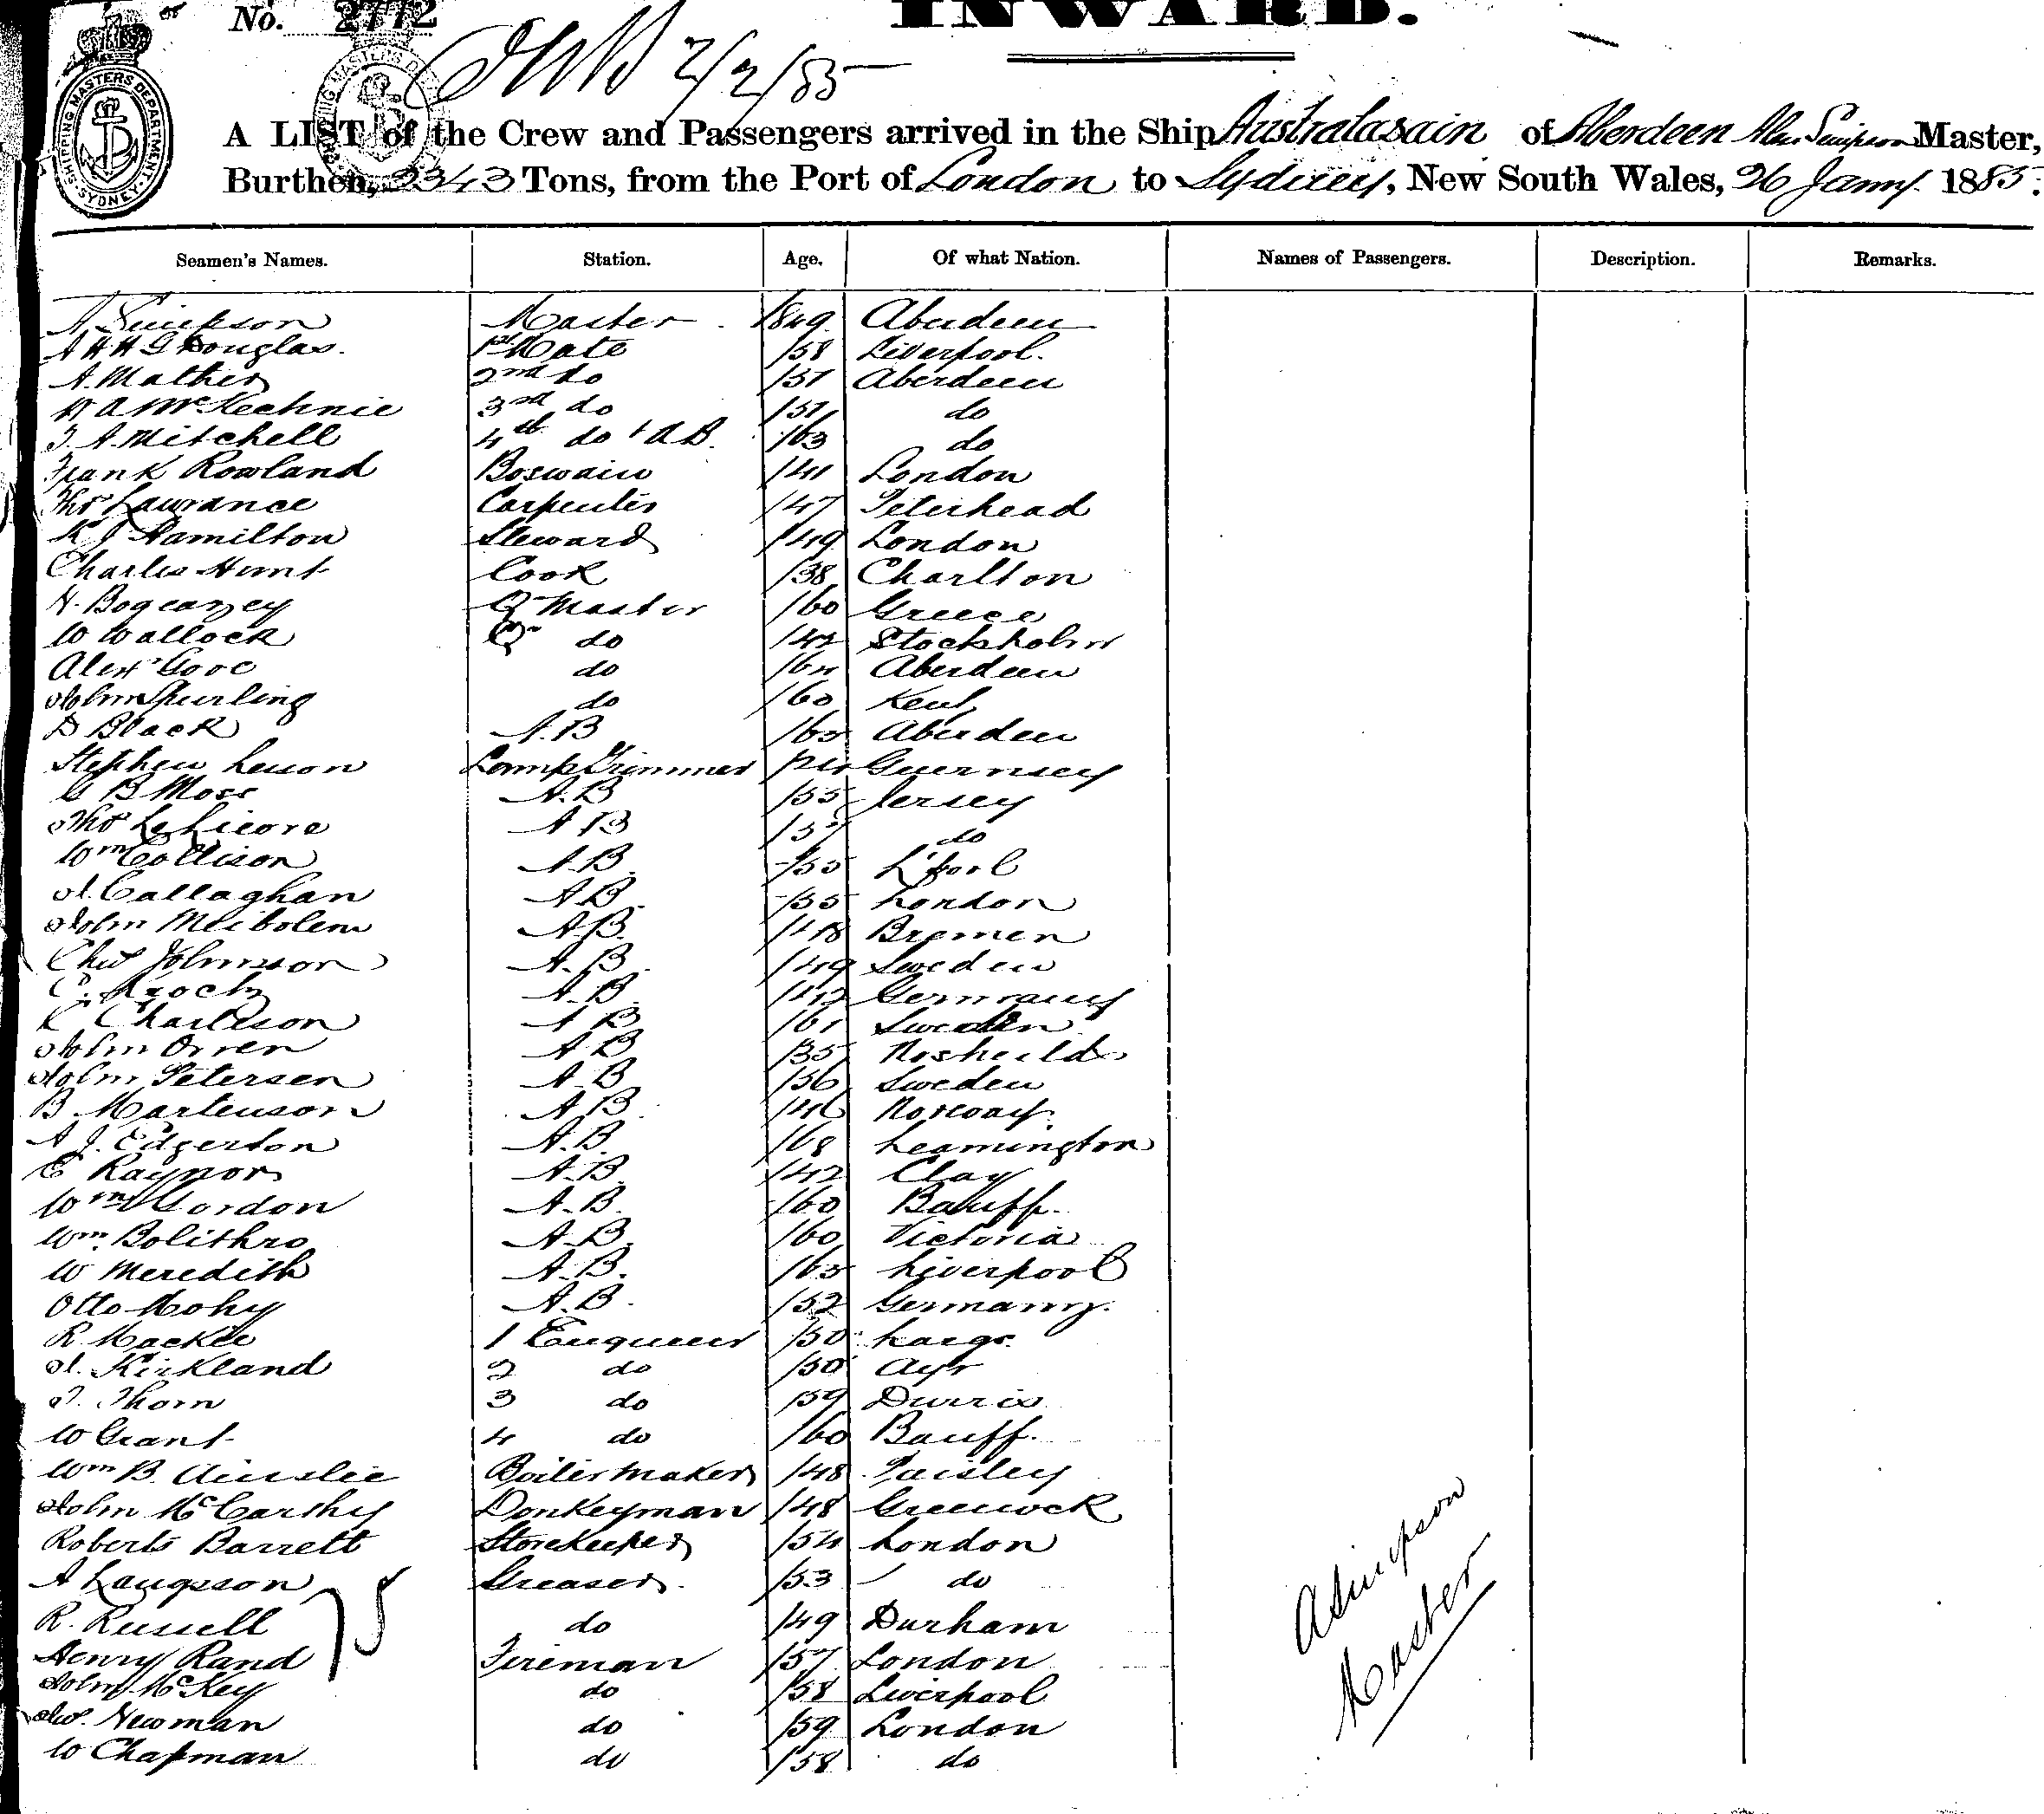 No. 2772
INWARD.
2/2/85
SHIPPING MASTERS DEPARTMENT SYDNEY
A LIST of the Crew and Passengers arrived in the Ship Australasain of Aberdeen Alex Simpson Master,
Burthen, 2343 Tons, from the Port of London to Sydney, New South Wales, 26 Jany. 1885.
Seamen's Names. Station. Age. Of what Nation. Names of Passengers. Description. Remarks.
A Simpson Master 1849 Aberdeen
A H H G Douglas. 1st Mate /58 Liverpool.
A. Mather 2nd do /51 Aberdeen
A McKechnie 3rd do /51 do
J. A. Mitchell 4th do & A.B. /63 do
Frank Rowland Boswain /41 London
Thos Lawrance Carpenter /47 Peterhead
K J Hamilton Steward /49 London
Charles Hunt Cook /38 Charlton
N. Q Master /60 Greece
W Wallock Qr do /42 Stockholm
Alexr Gove do /64 Aberdeen
John Spurling do /60 Kent
D Black A.B /65 Aberdeen
Stephen Lenon Lamp Trimmer Guernsey
G B Moss A.B /55 Jersey
Thos A B /57 do
Wm Collison A.B. /55 L'pool
J. Callaghan A.B. /55 London
John Meibolem A.B. /48 Bremen
Chas Johnson A. B. /49 Sweden
C. A.B. Germany
C Charlson A B /61 Sweden
John Orren A B /35
John Petersen A B /56 Sweden
B. Martenson A B. /46 Norway.
A J. Edgerton A.B. /68 Leamington
E Raynor A.B. /42 Clay
Wm Gordon A.B. /60 Banff.
Wm. Bolithro A.B. /60 Victoria
W Meredith A.B. /65 Liverpool
Otto Mohy A.B. /52 Germany.
R. Mackie 1 Engineer /50 Largs.
J. Kirkland 2 do /50 Ayr
J. Thorn 3 do /59 Durris
W Grant 4 do /60 Banff.
Wm B. Ainslie Boilermaker /48 Paisley
John McCarthy Donkeyman /48 Greenock
Roberts Barrett Storekeeper /54 London
A Greaser. /53 do
R. Russell do /49 Durham
75
Henry Rand Fireman /57 London
John McKey do /58 Liverpool
Jas. Newman do /59 London
W Chapman do /58 do
A Simpson
Master